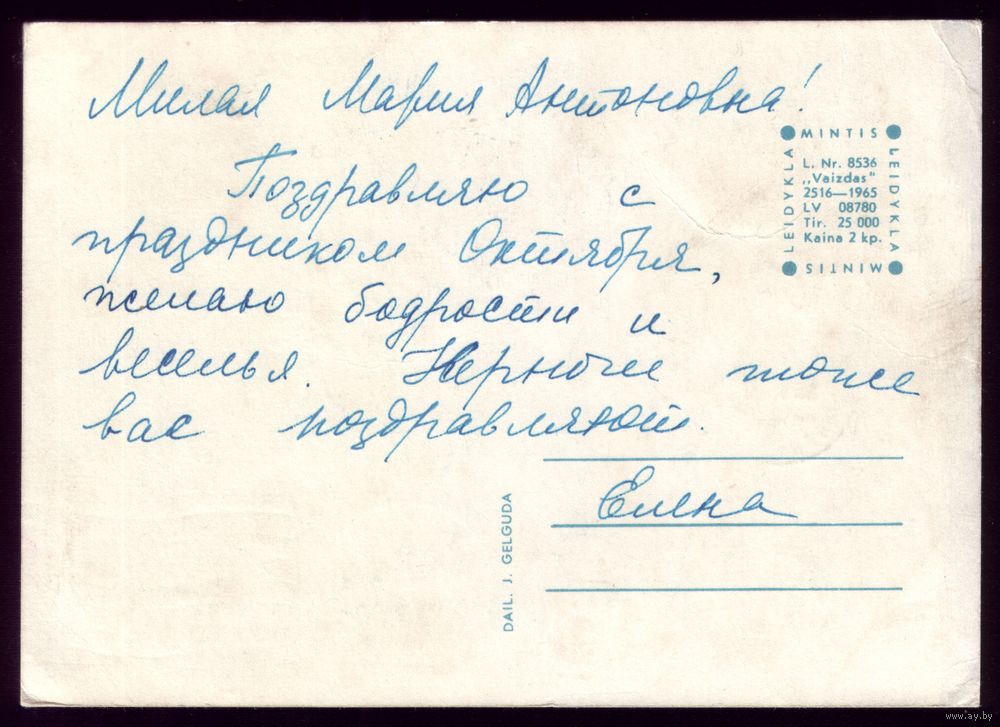 Милая Мария Антоновна!
Поздравляю с
праздником Октября,
желаю бодрости и
веселья. тоже
вас поздравляют.
Елена
MINTIS
LEIDYKLA
MINTIS
LEIDYKLA
L. Nr. 8536
„Vaizdas"
2516—1965
LV 08780
Tir. 25 000
Kaina 2 kp.
DAIL. J. GELGUDA
www.ay.by